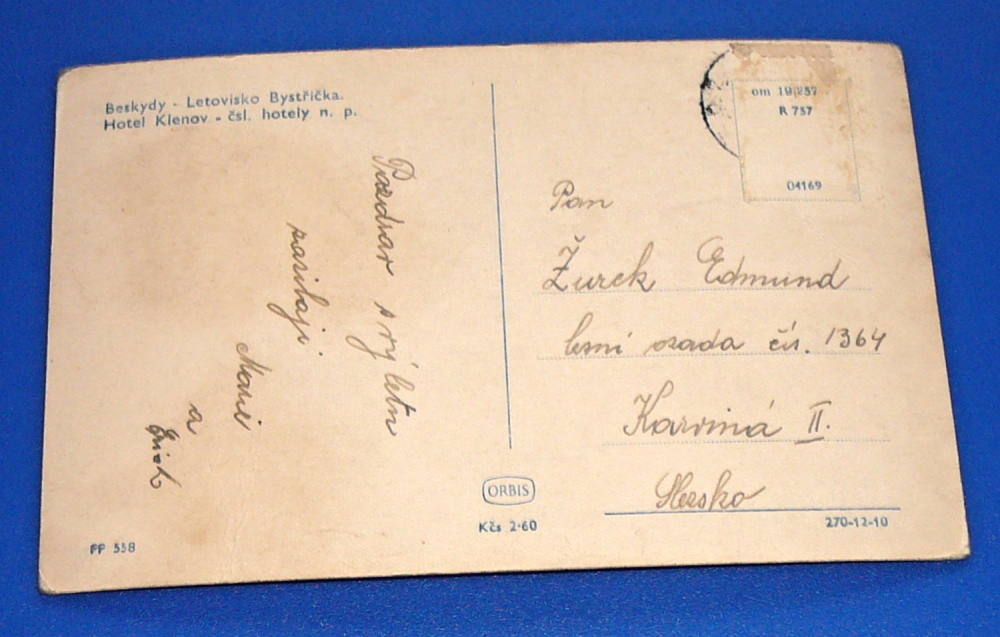 Beskydy - Letovisko Bystřička.
Hotel Klenov - čsl. hotely n. p.
Pozdrav s výletu
zasílají
Marie
a
Erich
om 19,257
R 757
04169
Pan
Žurek Edmund
lesní osada čís. 1364
Karviná II.
Slezsko
ORBIS
Kčs 2·60
270-12-10
PF 558